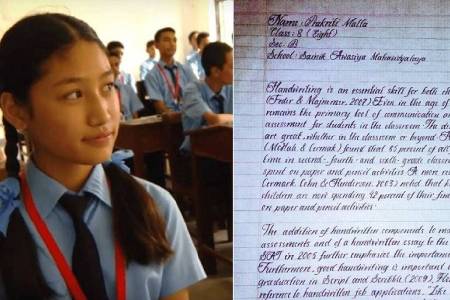 Name : Prakriti Malla
Class : 8 ( Eight)
Sec : B
School : Sainik Awasiya Mahavidyalaya
Handwriting is an essential skill for both
Majnemer, 2007). Even in the age of
remains the primary tool of communication
assessment for students in the classroom. The
are great, whether in the classroom or beyond. A
Cermak) found that 85 percent of all
time in second-, fourth- and sixth- grade
spent on paper and pencil activities. A more
Cermak, Cohn & Henderson, 2003) noted that
children are now spending 42 percent of their
on paper and pencil activities.
The addition of handwritten components to
assessments and of a handwritten essay to the
SAT in 2005 further emphasize the importance
Furthermore, good handwriting is important
graduation. In Script and Scribble (2009),
reference to handwritten job applications. Like